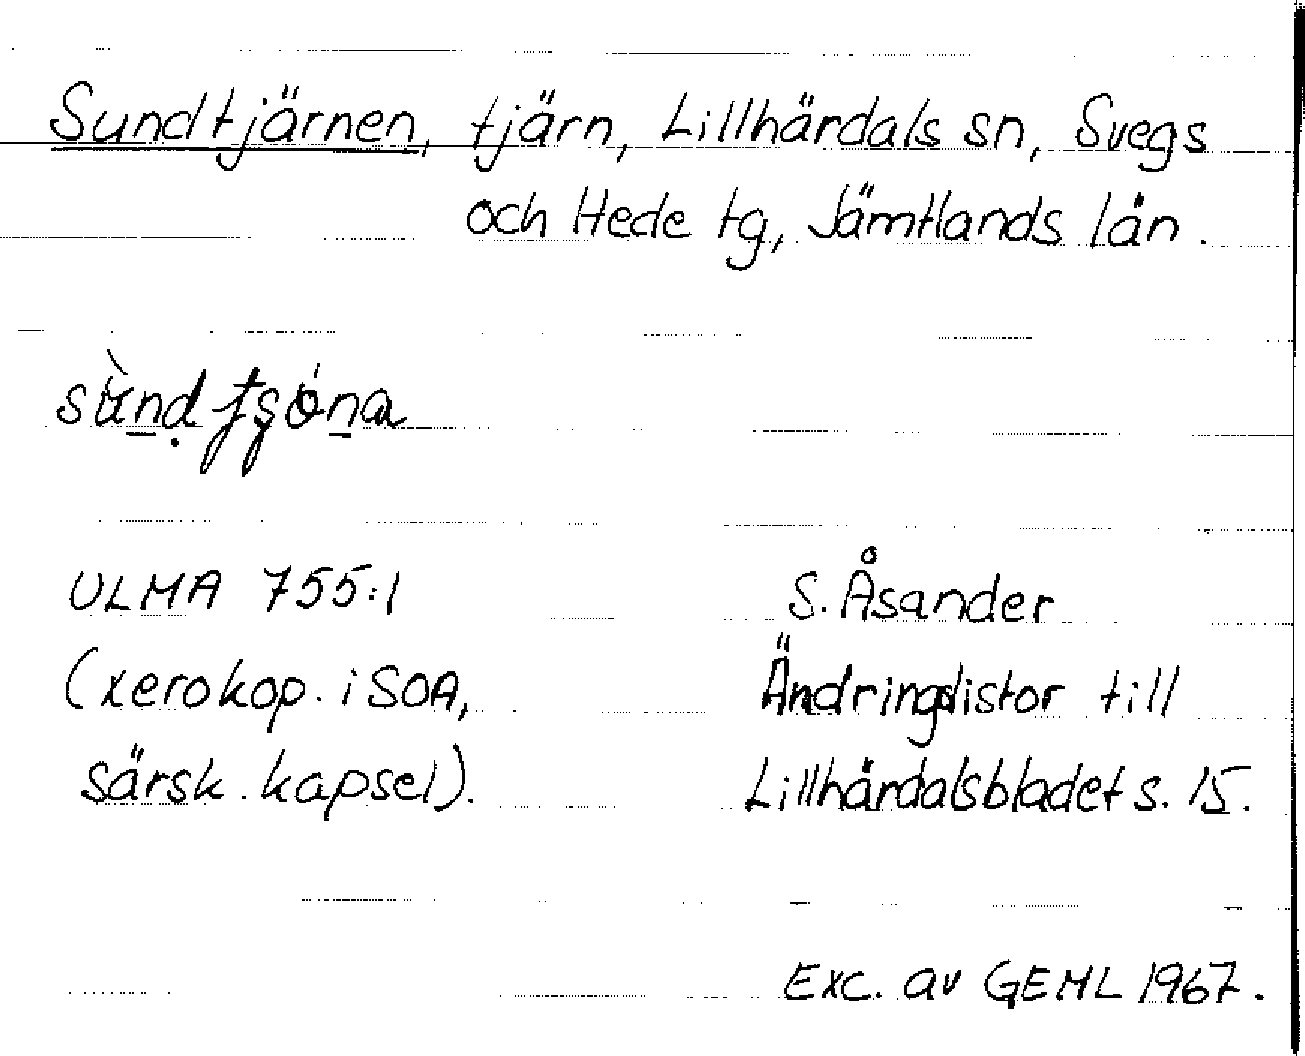 Sundtjärnen, tjärn, Lillhärdals sn, Svegs
och Hede tg, Jämtlands län.
ULMA 755:1
(xerokop. i SOA,
särsk. kapsel).
S. Åsander
Ändringslistor till
Lillhärdalsbladet s. 15.
Exc. av GEML 1967.